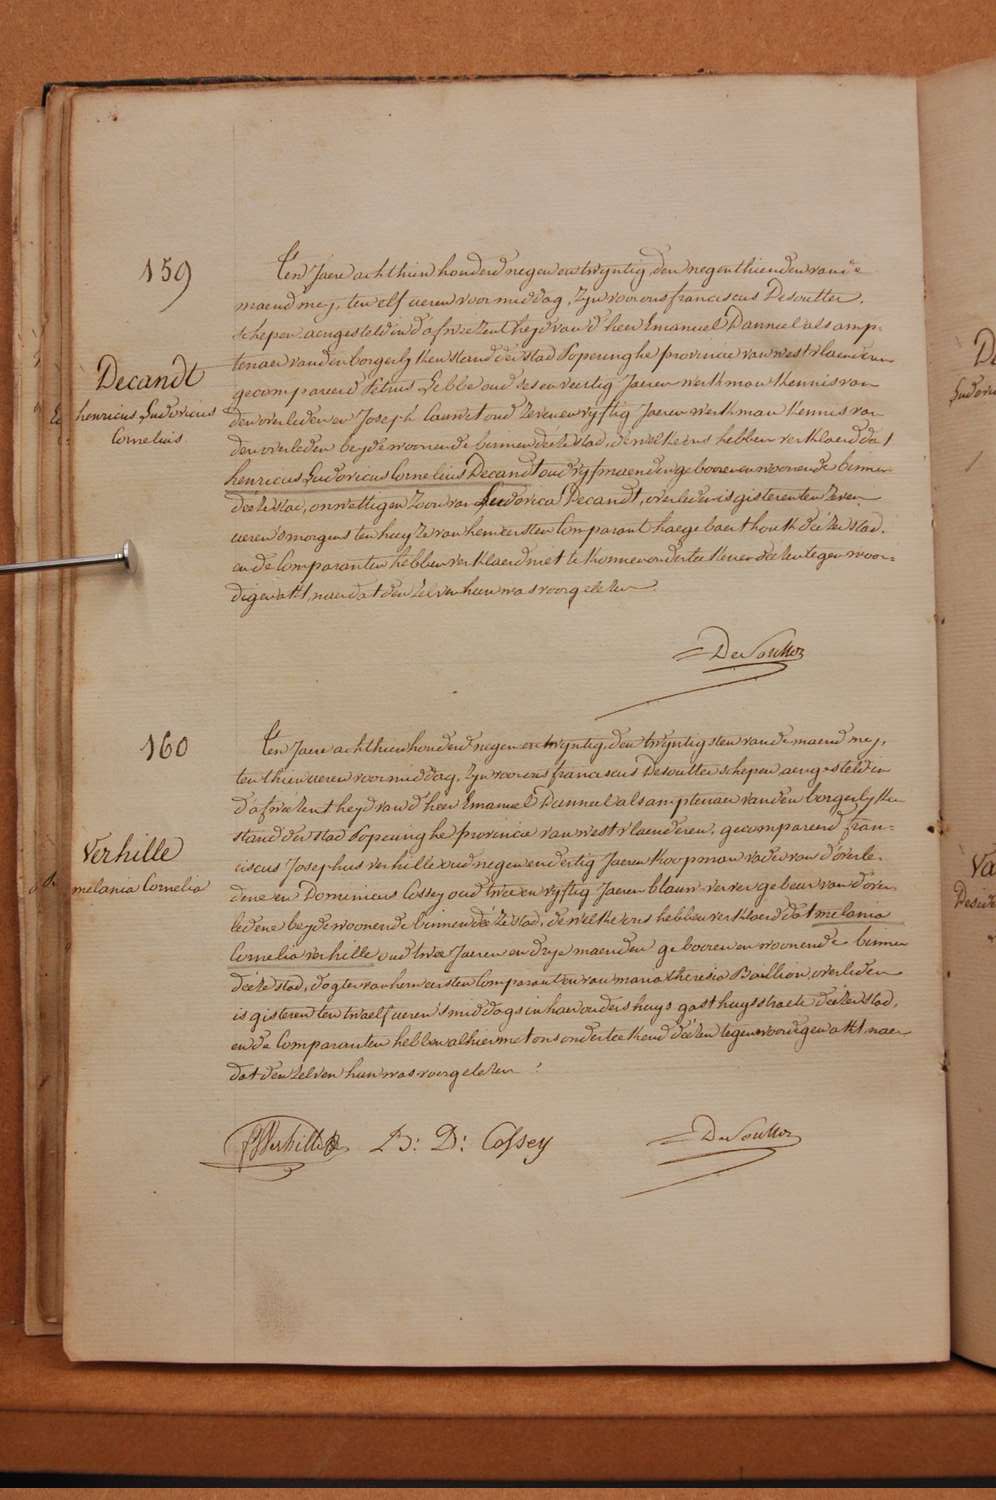 159
Decandt
henricus Ludovicus
Cornelius
Ten Jaere achthien honderd negen en twyntig, den negenthienden van de
maend mey, ten elf ueren voormiddag, Zyn voor ons franciscus Desoutter,
schepen aengesteld in d'afwezentheyd van d'heer Emanuel Danneel als amp-
tenaer van den borgerlyken stand der stad Poperinghe provincie van westvlaenderen
gecompareerd Petrus Lebbe oud ses en veertig Jaeren werkman kennis van
den overleden en Joseph Cauwet oud Zeven en vyftig Jaeren werkman kennis van
den overleden beyde woonende binnen deéze stad, de welke ons hebben verklaerd dat
henricus Ludovicus Cornelius Decandt oud vyf maenden gebooren en woonende binnen
deéze stad, onwettigen zoon van Ludovica Decandt, overleden is gisteren ten Zeven
ueren s'morgens ten huyze van hem eersten Comparant haegebaerthoutk deézer stad.
en de Comparanten hebben verklaerd niet te konnen onderteekenen deézen tegenwoor-
digen akt, naer dat den Zelven hun was voorgelezen.
DeSoutter
160
Verhille
melania Cornelia
Ten Jaere achthien honderd negen en twyntig, den twyntigsten van de maend mey,
ten thien ueren voormiddag, Zyn voor ons franciscus Desoutter schepen aengesteld in
d'afwezentheyd van d'heer Emanuel Danneel als amptenaer van den borgerlyken
stand der stad Poperinghe provincie van westvlaenderen, gecompareerd fran-
ciscus Josephus verhille oud negen en dertig Jaeren koopman vader van d'overle-
dene en Dominicus Cossey oud twee en vyftig Jaeren blauw-verver gebeur van d'over-
ledene beyde woonende binnen deéze stad, de welke ons hebben verklaerd dat melania
Cornelia verhille oud twee Jaeren en drye maenden gebooren en woonende binnen
deéze stad, dogter van hem eersten Comparant en van maria theresia Baillion, overleden
is gisteren ten twaelf ueren s'middags in haer ouders huys gasthuysstraete deézer stad,
en de Comparanten hebben alhier met ons onderteekend deézen tegenwoordigen akt naer
dat den zelven hun was voorgelezen.
Verhille B: D: Cossey DeSoutter